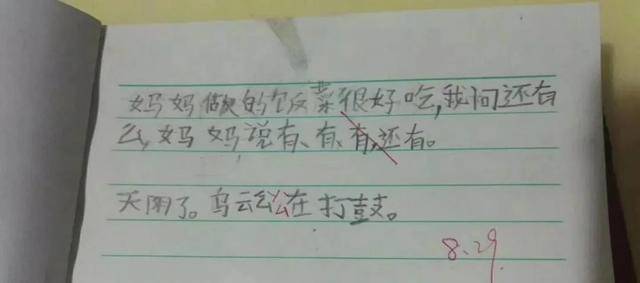 妈妈做的饭菜很好吃,我问还有
么,妈妈说有、有、有,还有。
天阴了。乌云公公在打鼓。
8.29